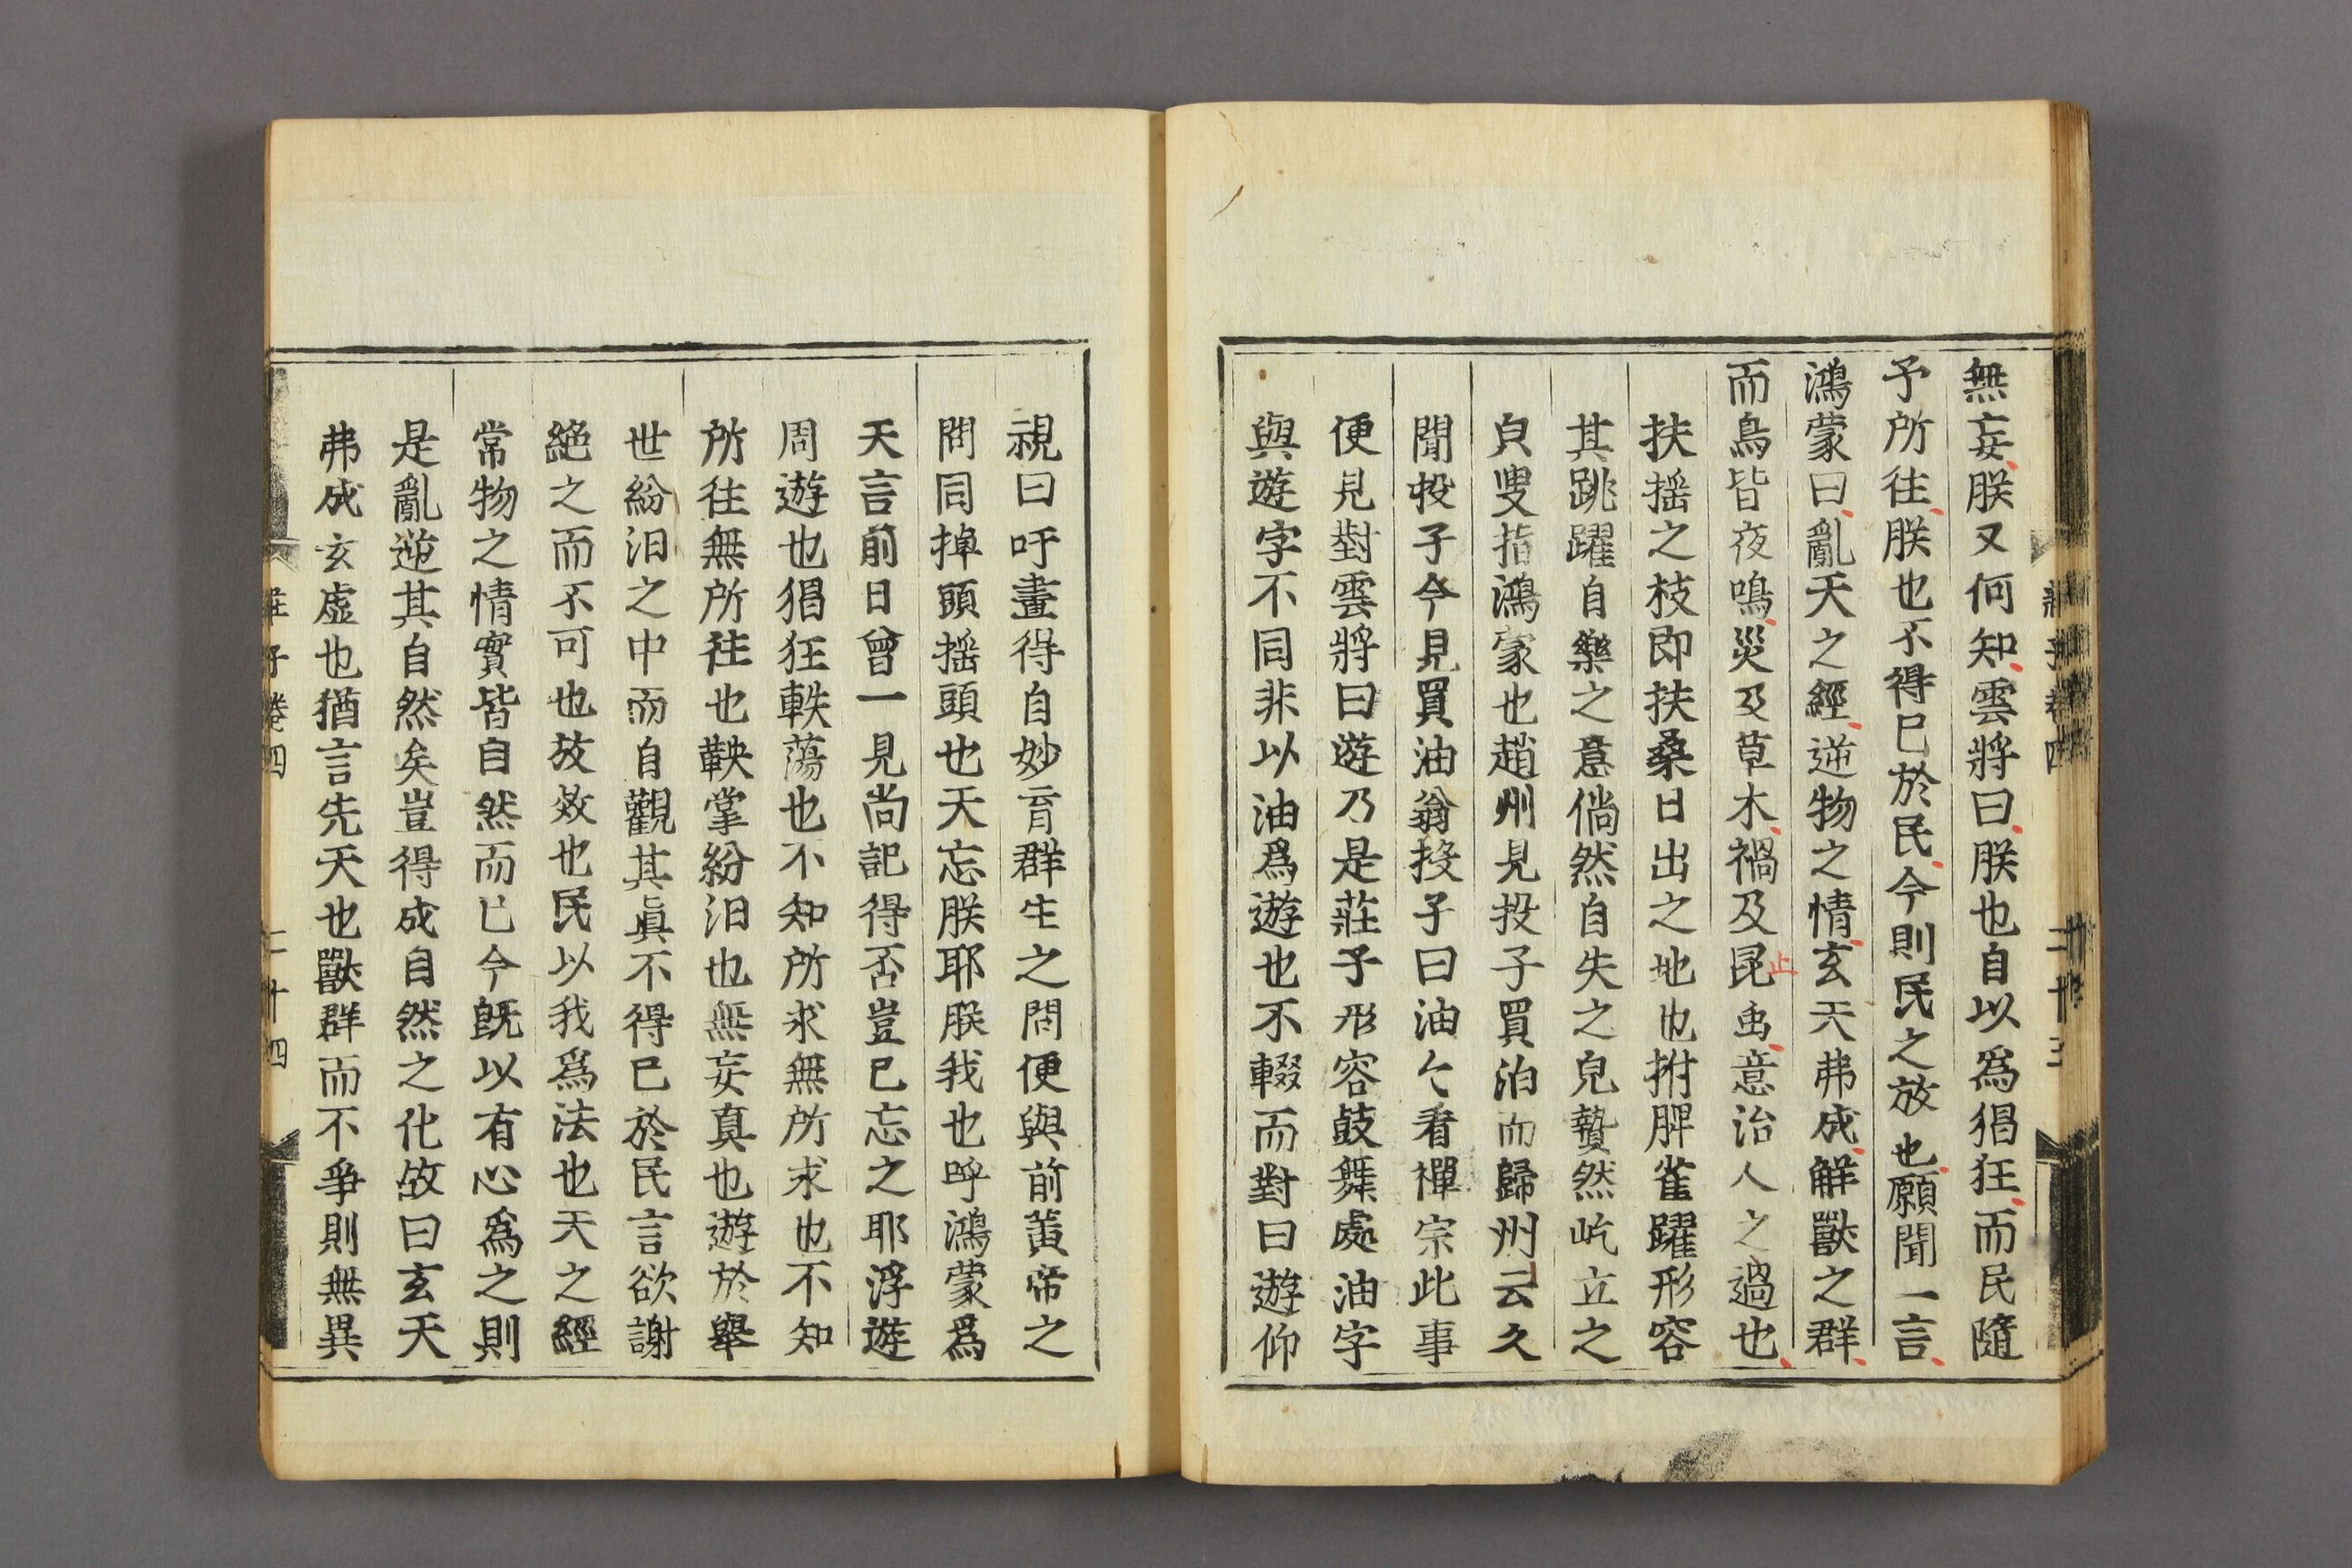 無妄朕又何知雲將曰朕也自以爲猖狂而民隨
予所往朕也不得已於民今則民之放也願聞一言
鴻蒙曰亂天之經逆物之情玄天弗成解獸之群
而鳥皆夜鳴災及草木禍及昆虫意治人之過也
止
扶揺之枝即扶桑日出之地也拊脾雀躍形容
其跳躍自樂之意倘然自失之皃贄然屹立之
皃叟指鴻蒙也趙州見投子買油而歸州云久
聞投子今見買油翁投子曰油〻看禪宗此事
便見對雲將曰遊乃是莊子形容鼓舞處油字
與遊字不同非以油爲遊也不輟而對曰遊仰
莊子卷四
二十三
視曰吁畫得自妙育群生之問便與前黃帝之
問同掉頭揺頭也天忘朕耶朕我也呼鴻蒙爲
天言前日曾一見尚記得否豈已忘之耶浮遊
周遊也猖狂軼蕩也不知所求無所求也不知
所往無所往也鞅掌紛汨也無妄真也遊於舉
世紛汨之中而自觀其眞不得已於民言欲謝
絶之而不可也放效也民以我爲法也天之經
常物之情實皆自然而已今既以有心爲之則
是亂逆其自然矣豈得成自然之化故曰玄天
弗成玄虛也猶言先天也獸群而不爭則無異
莊子卷四
二十四